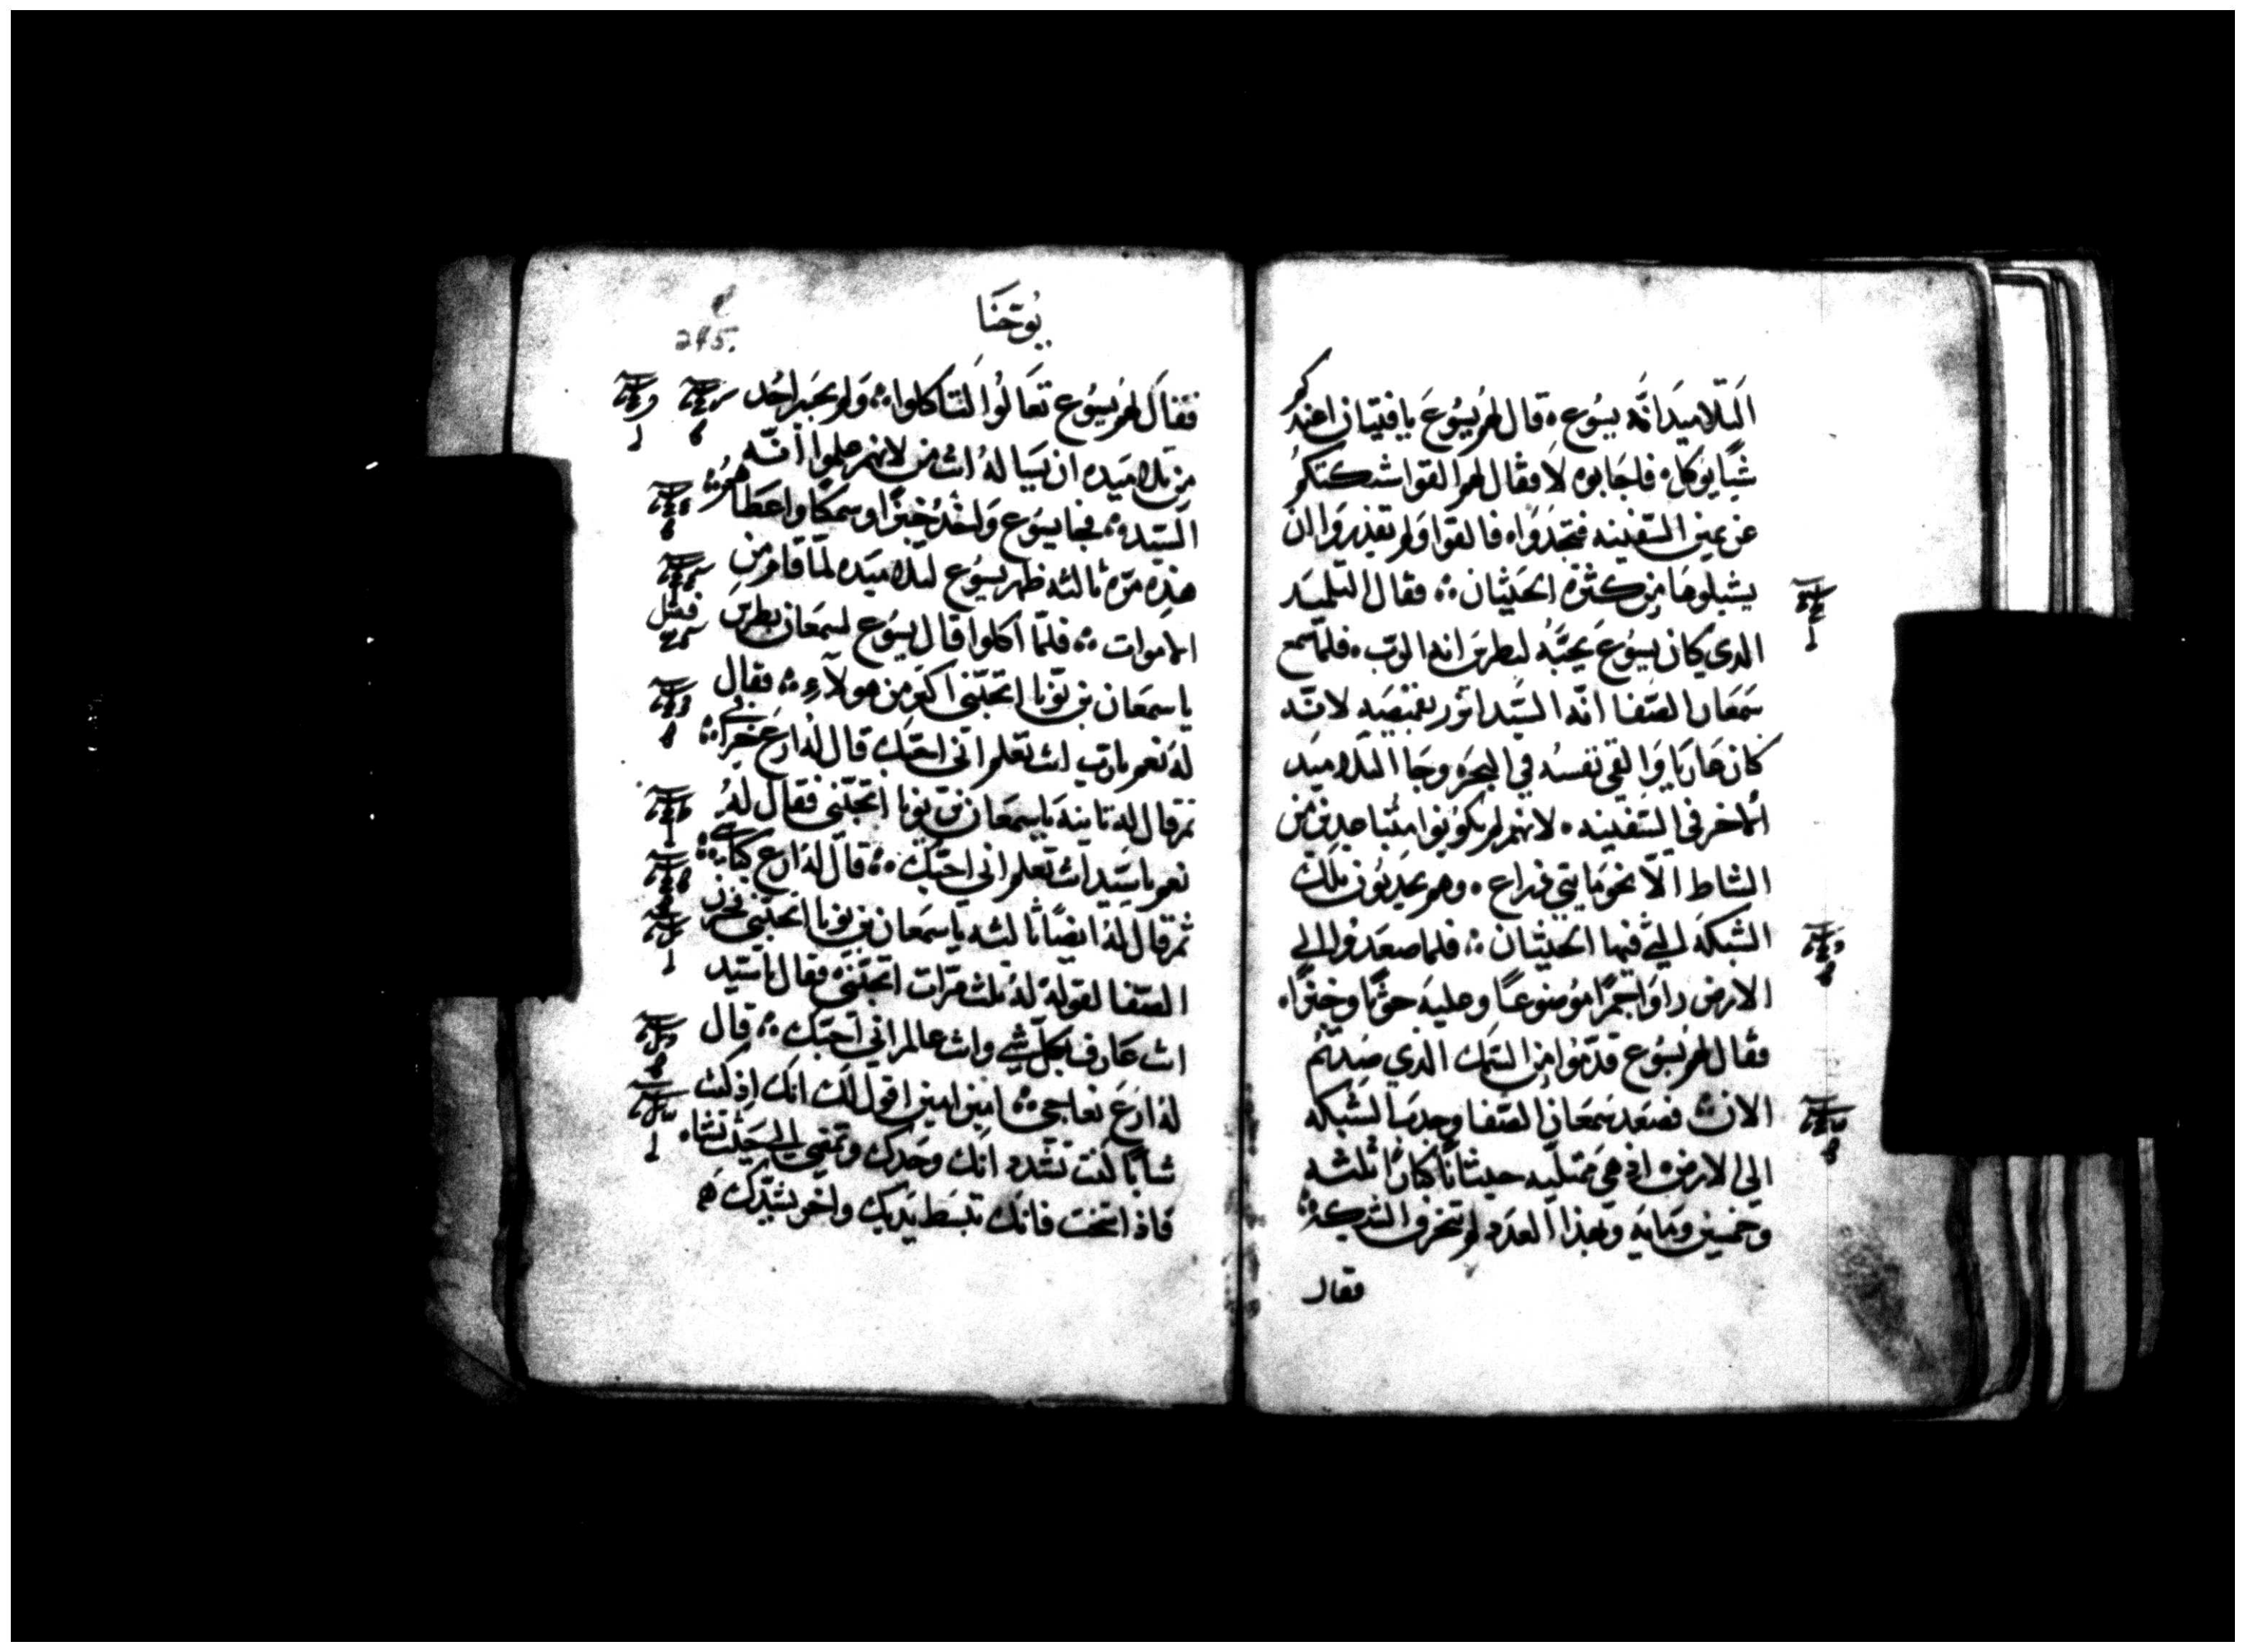 التلاميذ انّه يسُوع ۰ قال لهُم يسُوعَ يا فتيان اعندكم
شيًا يوكل ۰ فاجابوه لا فقال لهم القوا شبكتكمُ
عن يمين السّفينه فتجدَوَا ۰ فالقوا ولم يقدروا ان
يشيلوها من كثرة الحيثان ⁘ فقال التلميد
الدي كان يسُوعَ يحبّهُ لبطرسَ انه الرّب ۰ فلمّا سمع
سَمعَان الصّفا انّه السَّيد اتزر بقميصَه لانّه
كان عَاريًا وَالقى نفسُه في البحرَه وجَا التلاميد
الاخر في السّفينه ۰ لانهم لم يكونوا متُباعدين من
الشاط الّا نحوَ مايتي دراع ۰ وهم يجدبُون تلك
الشبكه التي فيها الحيثان ⁘ فلما صعَدوُا الي
الارض راوَا جمرًا موُضوعًا وعليه حوتًا وخبزًا ۰
فقال لهُم يسُوع قدّمُوا من السّمك الدي صدتُم
الان ⁘ فصَعَد سَمعَان الصّفا وجدبَ الشبكه
الى الارض ۰ اد هي مَمتليه حيثانًا كبارًا ثلثه
وخمسين ومَايه وبهذا العدَد لم تتخرق الشبكة ⁘
فقال
يُوحَنَا
245.
فقالَ لهُم يسُوع تعَالوُا لتَاكلوا ⁘ وَلم يجَسر احُد
من تلاميَده ان يَسَاله انُت من لانهم علموا أنّه
السَيّد ⁘ فجا يسوُع وَاخدُ خبزًا وسمكًا واعطَاهُم ⁘
هذِه مرّه ثالثه ظهر يسُوع لتلاميَده لمّا قامَ من
الاموات ⁘ فلمّا اكلوا قال يسوُع لسمعَان بطرسَ
فصل
يا سمعَان بن يوُنا اتحبّني اكثر من هولآءِ ⁘ فقال
لهَ نعم يا رب انت تعلم انّي احبّك قال لهُ ارعَ خرافي ⁘
ثم قال له ثانيَه يا سمعَان بن يونا اتحبّني فقال لهُ
نعم يا سيّد انت تعلم اني احبّك ⁘ قال لهُ ارع كباشي ⁘
ثم قال لهُ ايضًا ثالثه يا سمَعان بن يونا اتحبّني فحزن
الصّفا لقوله لهُ ثلث مرّات اتحبّني فقال يا سَيّد
انت عَارف بكلّ شي وانت عالم اني احبّك ⁘ قال
لهُ ارعَ نعاجي ⁘ امين امين اقول لك انك اذ كنت
شابًا كنت تشّد انك وحَدك وتمضي الى حَيث تشا ۰
فاذ اتخت فانك تبسَط يَديك واخر يشدّك